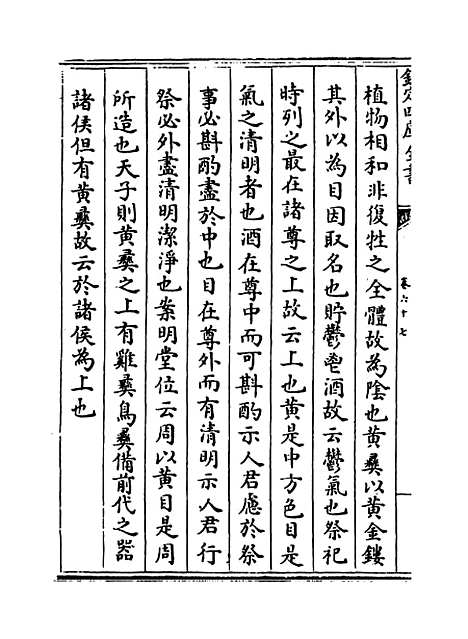 欽定四庫全書
卷六十七
植物相和非復牲之全體故為陰也黄彞以黄金鏤
其外以為目因取名也貯鬱鬯酒故云鬱氣也祭祀
時列之最在諸尊之上故云上也黄是中方色目是
氣之清明者也酒在尊中而可斟酌示人君慮於祭
事必斟酌盡於中也目在尊外而有清明示人君行
祭必外盡清明潔淨也案明堂位云周以黄目是周
所造也天子則黄彞之上有雞彞鳥彞備前代之器
諸侯但有黄彞故云於諸侯為上也